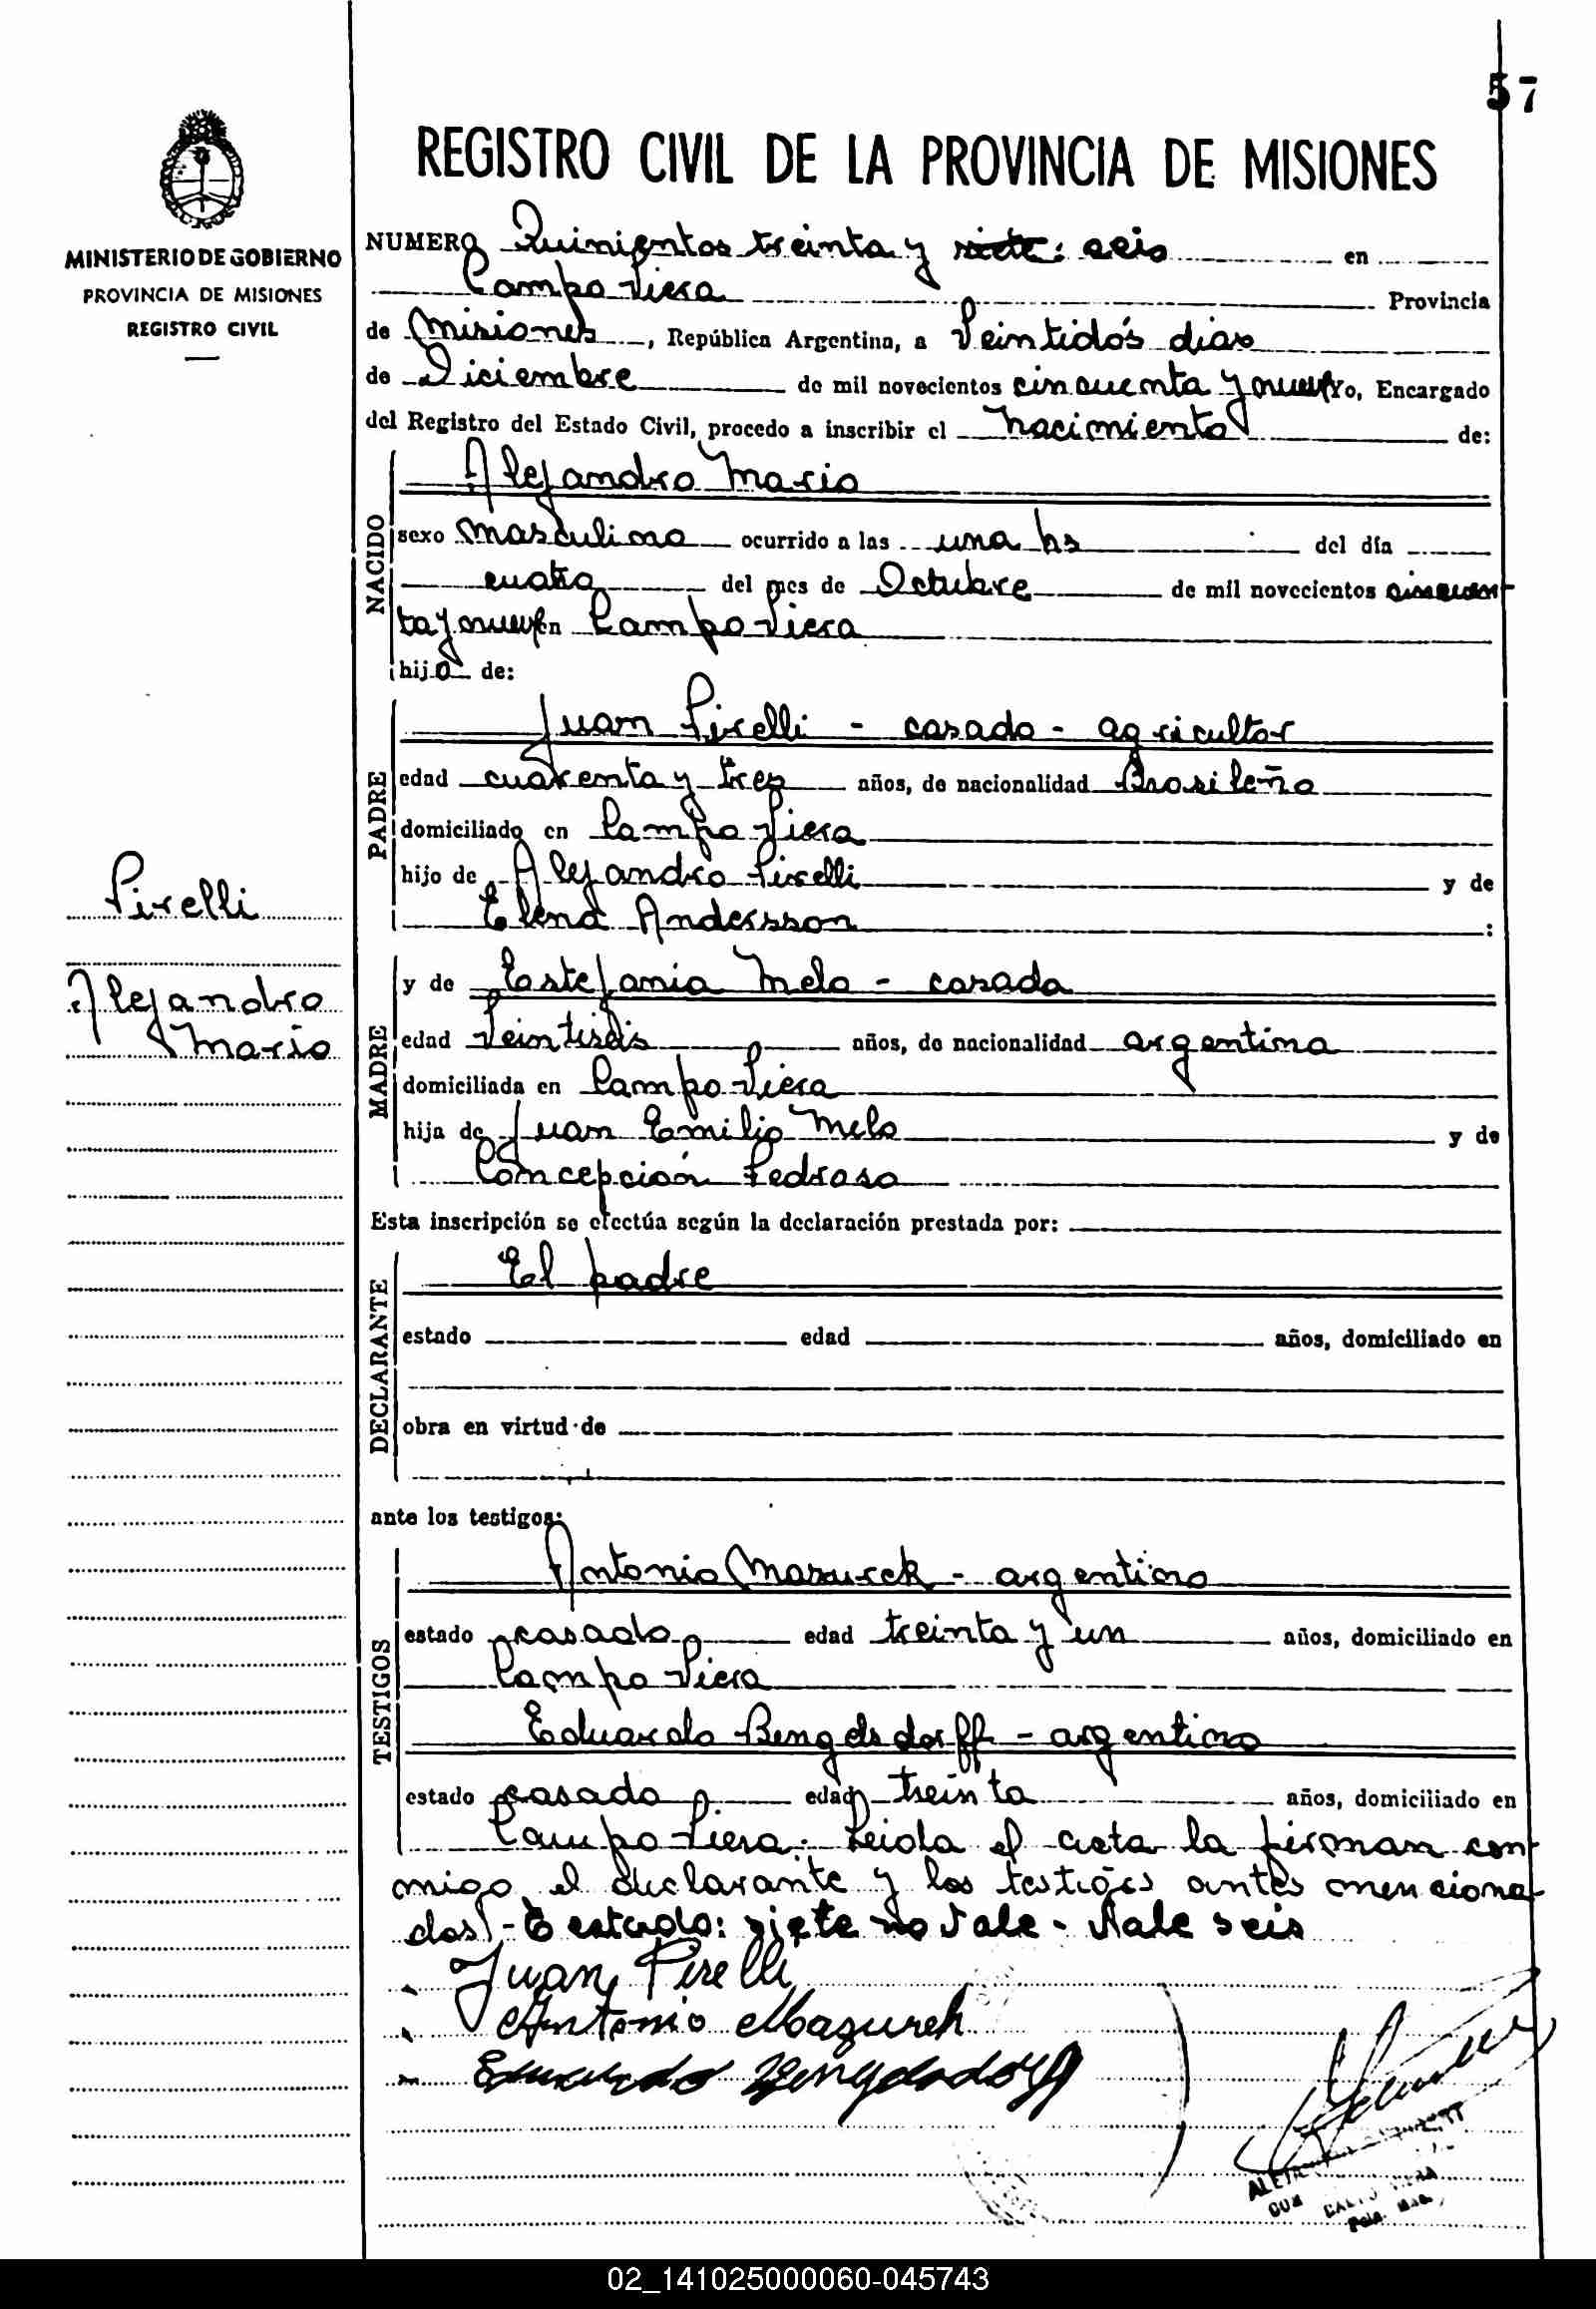 57
REGISTRO CIVIL DE LA PROVINCIA DE MISIONES
MINISTERIO DE GOBIERNO
PROVINCIA DE MISIONES
REGISTRO CIVIL
NUMERO Quinientos treinta y siete: seis en
Campo Viera Provincia
de Misiones, República Argentina, a Veintidós dias
de Diciembre de mil novecientos cincuenta y nueve Yo, Encargado
del Registro del Estado Civil, procedo a inscribir el nacimiento de:
NACIDO
Alejandro Mario
sexo masculino ocurrido a las una hs del día
cuatro del mes de Octubre de mil novecientos cincuen
ta y nueve en Campo Viera
hijo de:
PADRE
Juan Pirelli - casado - agricultor
edad cuarenta y tres años, de nacionalidad Brasileña
domiciliado en Campo Viera
hijo de Alejandro Pirelli y de
Elena Andersson :
Pirelli
Alejandro
Mario
MADRE
y de Estefania Melo - casada
edad Veintiseis años, de nacionalidad argentina
domiciliada en Campo Viera
hija de Juan Emilio Melo y de
Concepción Pedroso
Esta inscripción se efectúa según la declaración prestada por:
DECLARANTE
El padre
estado edad años, domiciliado en
obra en virtud de
ante los testigos:
TESTIGOS
Antonio Mazurek - argentino
estado casado edad treinta y un años, domiciliado en
Campo Viera
Eduardo Bengdsdorff - argentino
estado casado edad treinta años, domiciliado en
Campo Viera. Leida el acta la firman con
migo, el declarante y los testigos antes menciona
dos - E estado: siete no Vale - Vale seis
Juan Pirelli
Antonio Mazurek
Eduardo Bengdsdorff
02_141025000060-045743